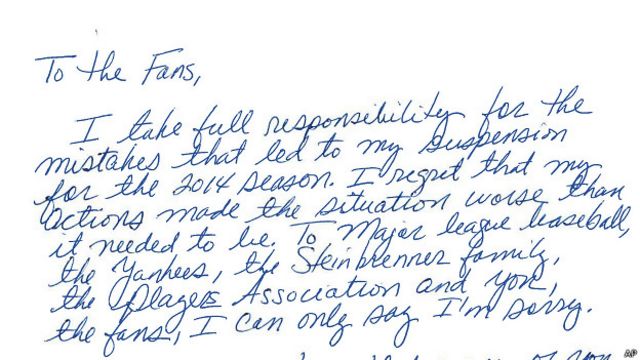 To the Fans,
I take full responsibility for the
mistakes that led to my suspension
for the 2014 season. I regret that my
actions made the situation worse than
it needed to be. To Major league baseball,
the Yankees, the Steinbrenner family,
the Players Association and you,
the fans, I can only say I'm sorry.
AP